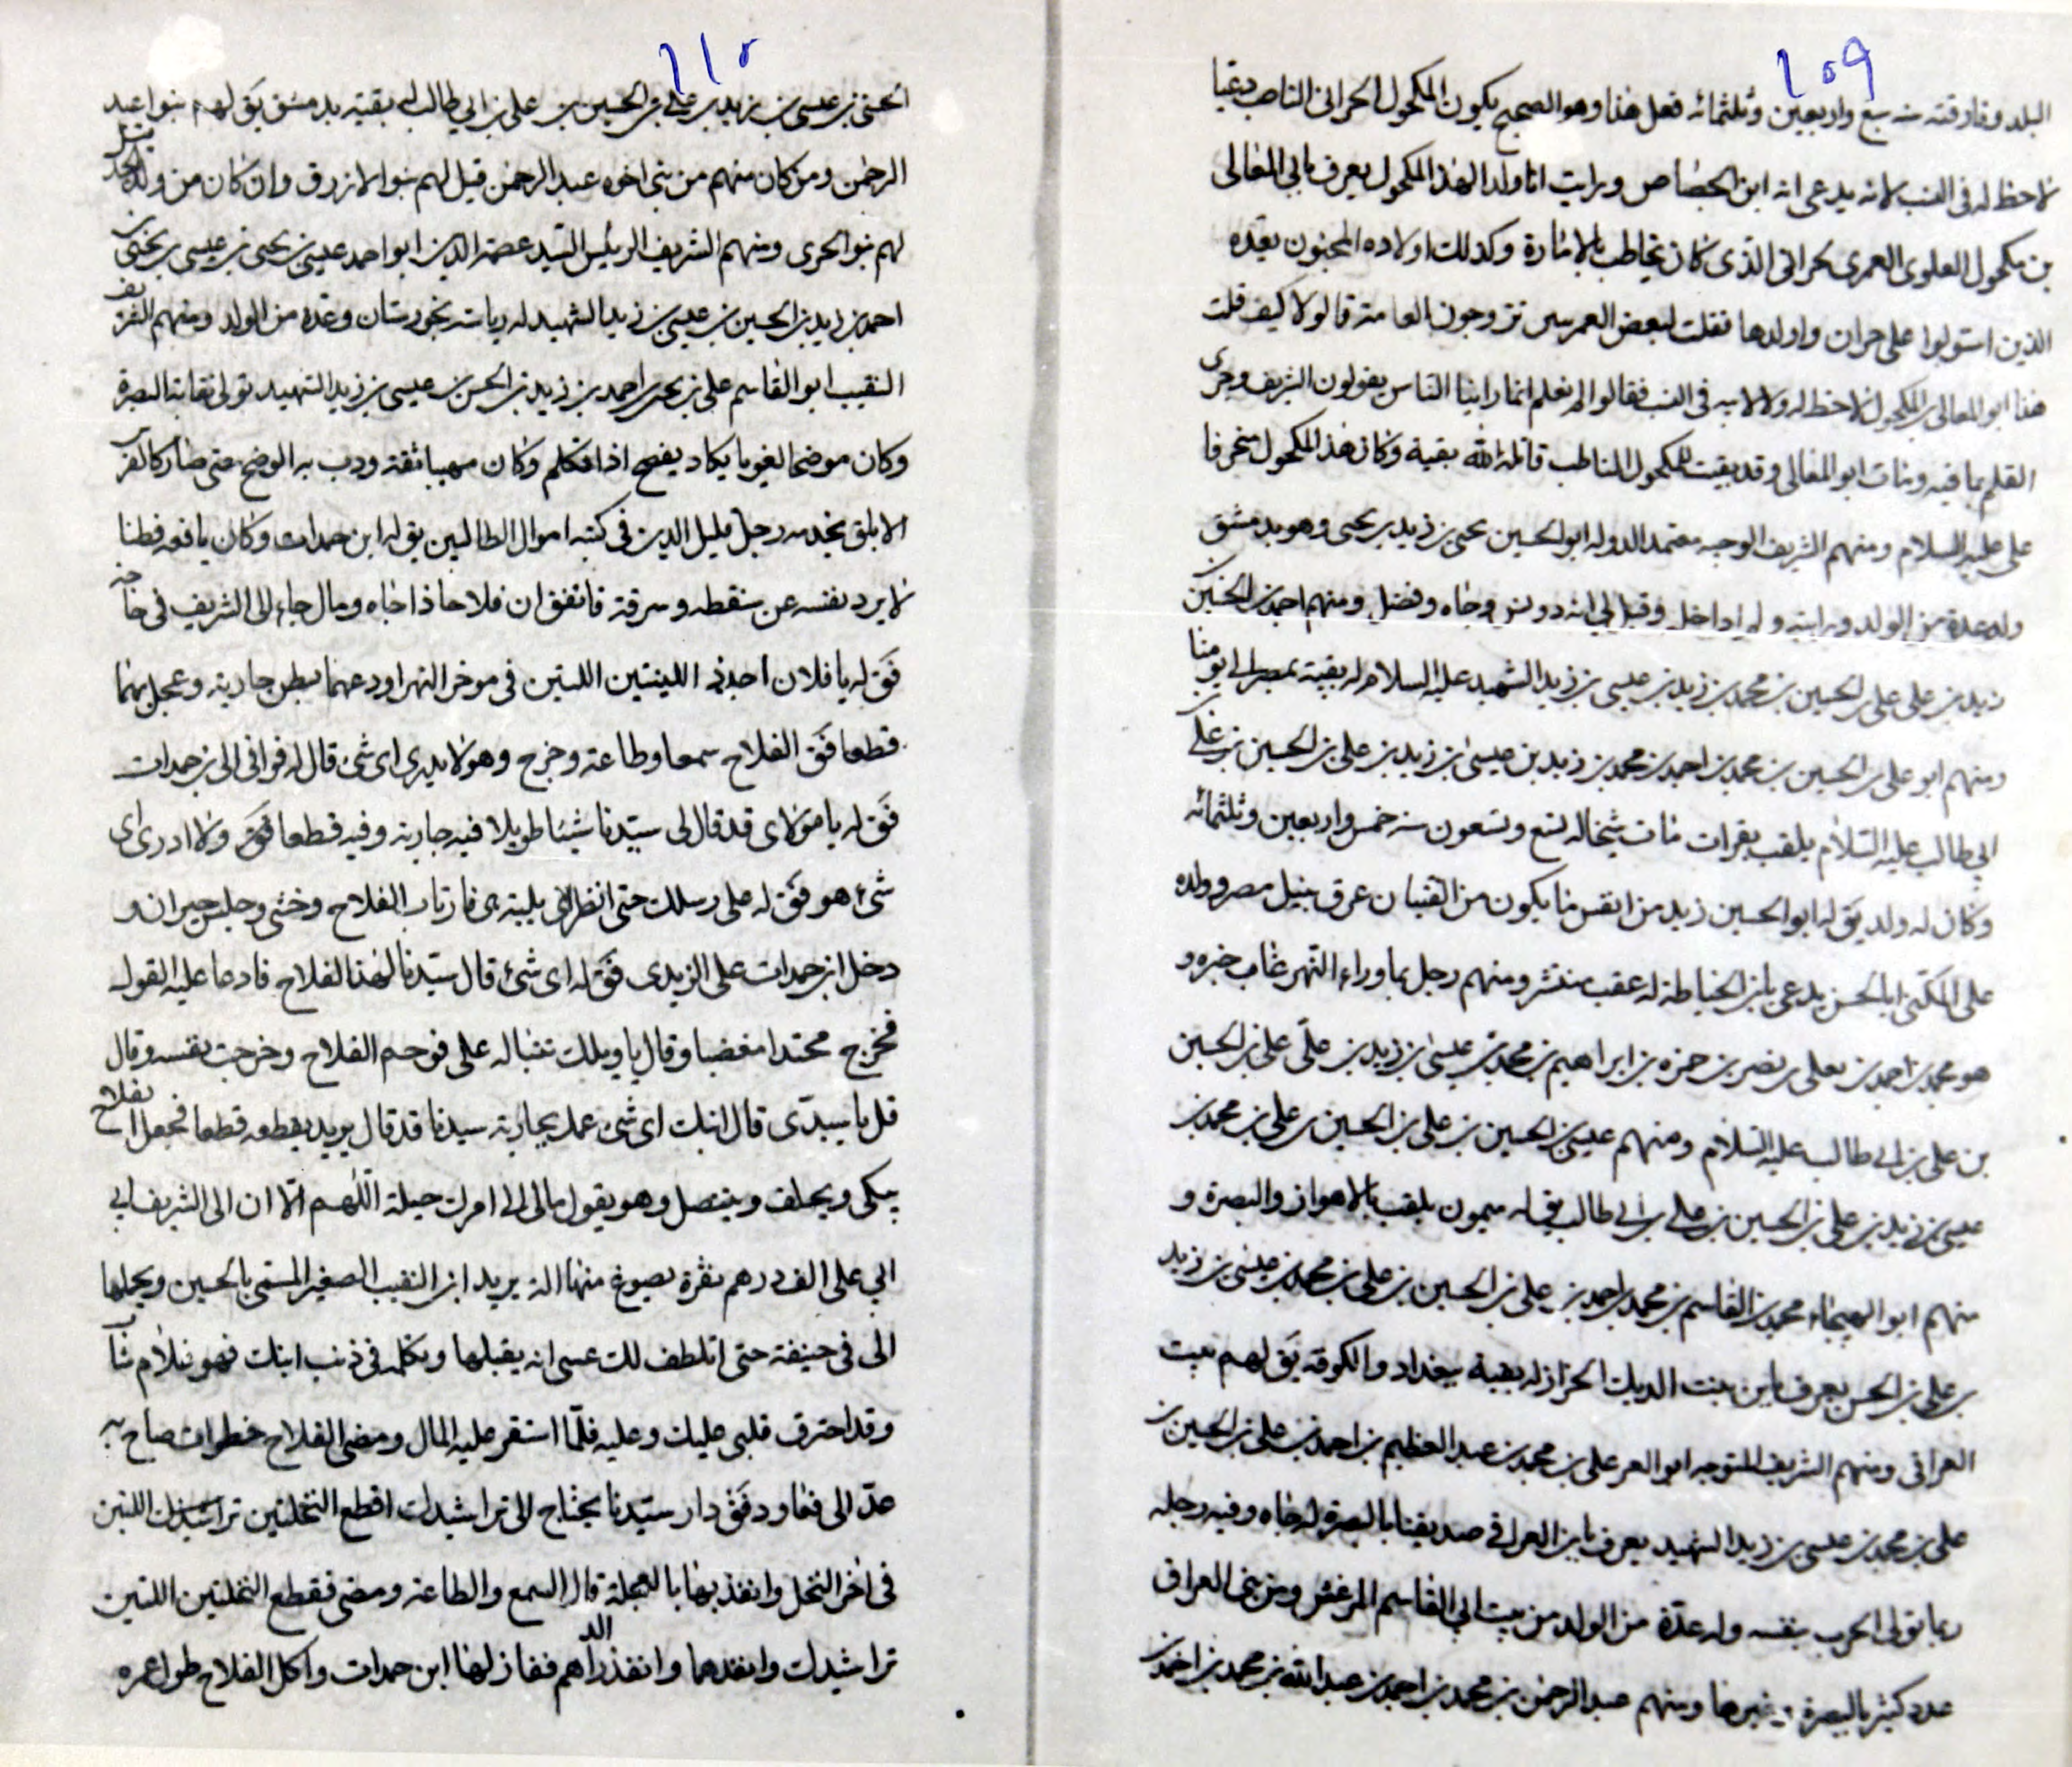 ١٠٩
البلد وفارقته سنه سبع واربعين وثلثمائه فعل هذا وهو الصحيح يكون المكحول الحرانى الناصب دعيا
لا حظ له فى النسب لانه يدعى انه ابن الجصاص ورايت انا ولدا لهذا المكحول يعرف بابى المعالى
بن مكحول العلوى العمرى بحرانى الذى كان يخاطب بالامارة وكذلك اولاده المجنون بعده
الذين استولوا على حران واولدها فقلت لبعض العمرىىن تزوجون العامة قالوا لا كيف قلت
هذا ابو المعالى بن المكحول لا حظ له ولا لابيه فى النسب فقالوا لم نعلم انما راينا الناس يقولون الشريف وجرى
القلم بما فيه ومات ابو المعالى وقد بقيت للمكحول الناصب قاتله الله بقية وكان هذا المكحول منحرفا
على عليه السلام ومنهم الشريف الوجيه معتمد الدوله ابو الحسين يحيى بن زيد بن يحيى وهو بدمشق
وله عدة من الولد ورايته وقيل لى انه دو وجاه وفضل ومنهم احمد بن الحسين بن
زيد بن على على بن الحسين بن محمد بن زيد بن عيسى بن زيد الشهيد عليه السلام له بقية بمصر الى يومنا
ومنهم ابو على بن الحسين بن محمد بن احمد بن محمد بن زيد بن عيسى بن زيد بن على بن الحسين بن على بن
ابى طالب عليه السلام يلقب بقرات مات شيخا له تسع وتسعون سنه خمس واربعين وثلثمائه
وكان له ولد يق له ابو الحسين زيد من انفس ما يكون من الفتيان غرق بنيل مصر وولده
على المكنى ابا الحسن يدعى بابن الخياطه له عقب منتشر ومنهم رجل بما وراء النهر غاب خبره و
هو محمد بن احمد بن يعلى بن نصر بن حمزه بن ابراهيم بن محمد بن عيسى بن زيد بن على على بن الحسين
بن على بن ابى طالب عليه السلام ومنهم عيسى بن الحسين بن على بن الحسين بن على بن محمد بن
عيسى بن زيد بن على بن الحسين بن على بن ابى طالب يق له ميمون يلقب بالاهواز والبصرة و
منهم ابو الهيجاء محمد بن القاسم بن محمد بن احمد بن على بن الحسين بن على بن محمد بن عيسى بن زيد
بن على بن الحسن يعرف بابن بنت الديك الخزاز له بقية ببغداد والكوفه يق لهم بيت
العراقى ومنهم الشريف المتوجه ابو العز على بن محمد بن عبد العظيم بن احمد بن على بن الحسين بن
على بن محمد بن عيسى بن زيد الشهيد يعرف بابن العراقى صديقنا بالبصرة له جاه وفيه رجله
ربما تولى الحرب بنفسه وله عدة من الولد من بيت ابى القاسم المرعش ومن بنى العراق
عدد كثير بالبصرة وغيرها ومنهم عبد الرحمن بن محمد بن احمد بن عبد الله بن محمد بن احمد بن
١١٠
الحسن بن عيسى بن زيد بن على بن الحسين بن على بن ابى طالب له بقية بدمشق يق لهم بنوا عبد
الرحمن ومن كان منهم من بنى اخوه عبد الرحمن قيل لهم بنو الازرق وان كان من ولد الجد قيل
لهم بنو الحرى ومنهم الشريف الرئيس السيد عصمة الدين ابو احمد عيسى بن يحيى بن عيسى بن يحيى بن
احمد بن زيد بن الحسين بن عيسى بن زيد الشهيد له رياسة بخورستان وعدة من الولد ومنهم الشريف
النقيب ابو القاسم على بن يحيى بن احمد بن زيد بن الحسن بن عيسى بن زيد الشهيد تولى نقابة البصرة
وكان موضحا لغويا يكاد يفصح اذا تكلم وكان مهيبا ثقة ودب به الوضح حتى صار كالفرس
الابلق يخدمه رجل قليل الدين فى كتبه اموال الطالبين يق له ابن حمدات وكان يافعه فطنا
لا يرد نفسه عن سقطه وسرقة فاتفق ان فلاحا ذا جاه ومال جاء الى الشريف فى حاجة
فق له يا فلان احدى اللينتين اللتين فى موخر النهر اودعهما بطن جاريته وعجل بهما
قطعا فق الفلاح سمعا وطاعة وخرج وهو لا يدرى اى شى قال له فوافى الى بن حمدات
فق له يا مولاى قد قال لى سيدنا شيئا طويلا فيه جاريته وفيه قطعا فوق ولا ادرى اى
شىء هو فق له على رسلك حتى انظر لاى بليته ى فارتاب الفلاح وخشى وجلس حيران و
دخل ابن حمدات على الزيدى فق له اى شىء قال سيدنا لهذا الفلاح فادعا عليه القوله
فخرج محتدا مغضبا وقال يا ويلك تنباله على فوجم الفلاح وخرجت نفسه وقال
قل يا سيدى قال ابنك اى شى عمل بجارية سيدنا قد قال يريد يقطعه قطعا فجعل الفلاح
يبكى ويحلف ويتنصل وهو يقول مالى الى امرك حيلة اللهم الا ان الى الشريف ابى
ابى على الف درهم نقرة يصوغ منها الة يريد ابن النقيب الصغير المسمى بالحسين ويحملها
الى فى خيفة حتى اتلطف لك عسى انه يقبلها وتكلمه فى ذنب ابنك فهو غلام شاب
وقد احترق قلبى عليك وعليه فلما استقر عليه المال ومضى الفلاح خطوات صاح به
عد الى فعاود فق دار سيدنا يحتاج الى تراشيدك اقطع النخلتين تراشيدك اللتين
فى اخر النخل وانفذ بها بالعجلة قال السمع والطاعة ومضى فقطع النخلتين اللتين
تراشيدك وانفذهما وانفذ الدراهم ففاز لها ابن حمدات واكل الفلاح طول عمره